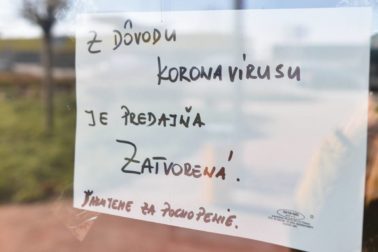 Z DÔVODU
KORONAVÍRUSU
JE PREDAJŇA
ZATVORENÁ!
ZA POCHOPENIE.